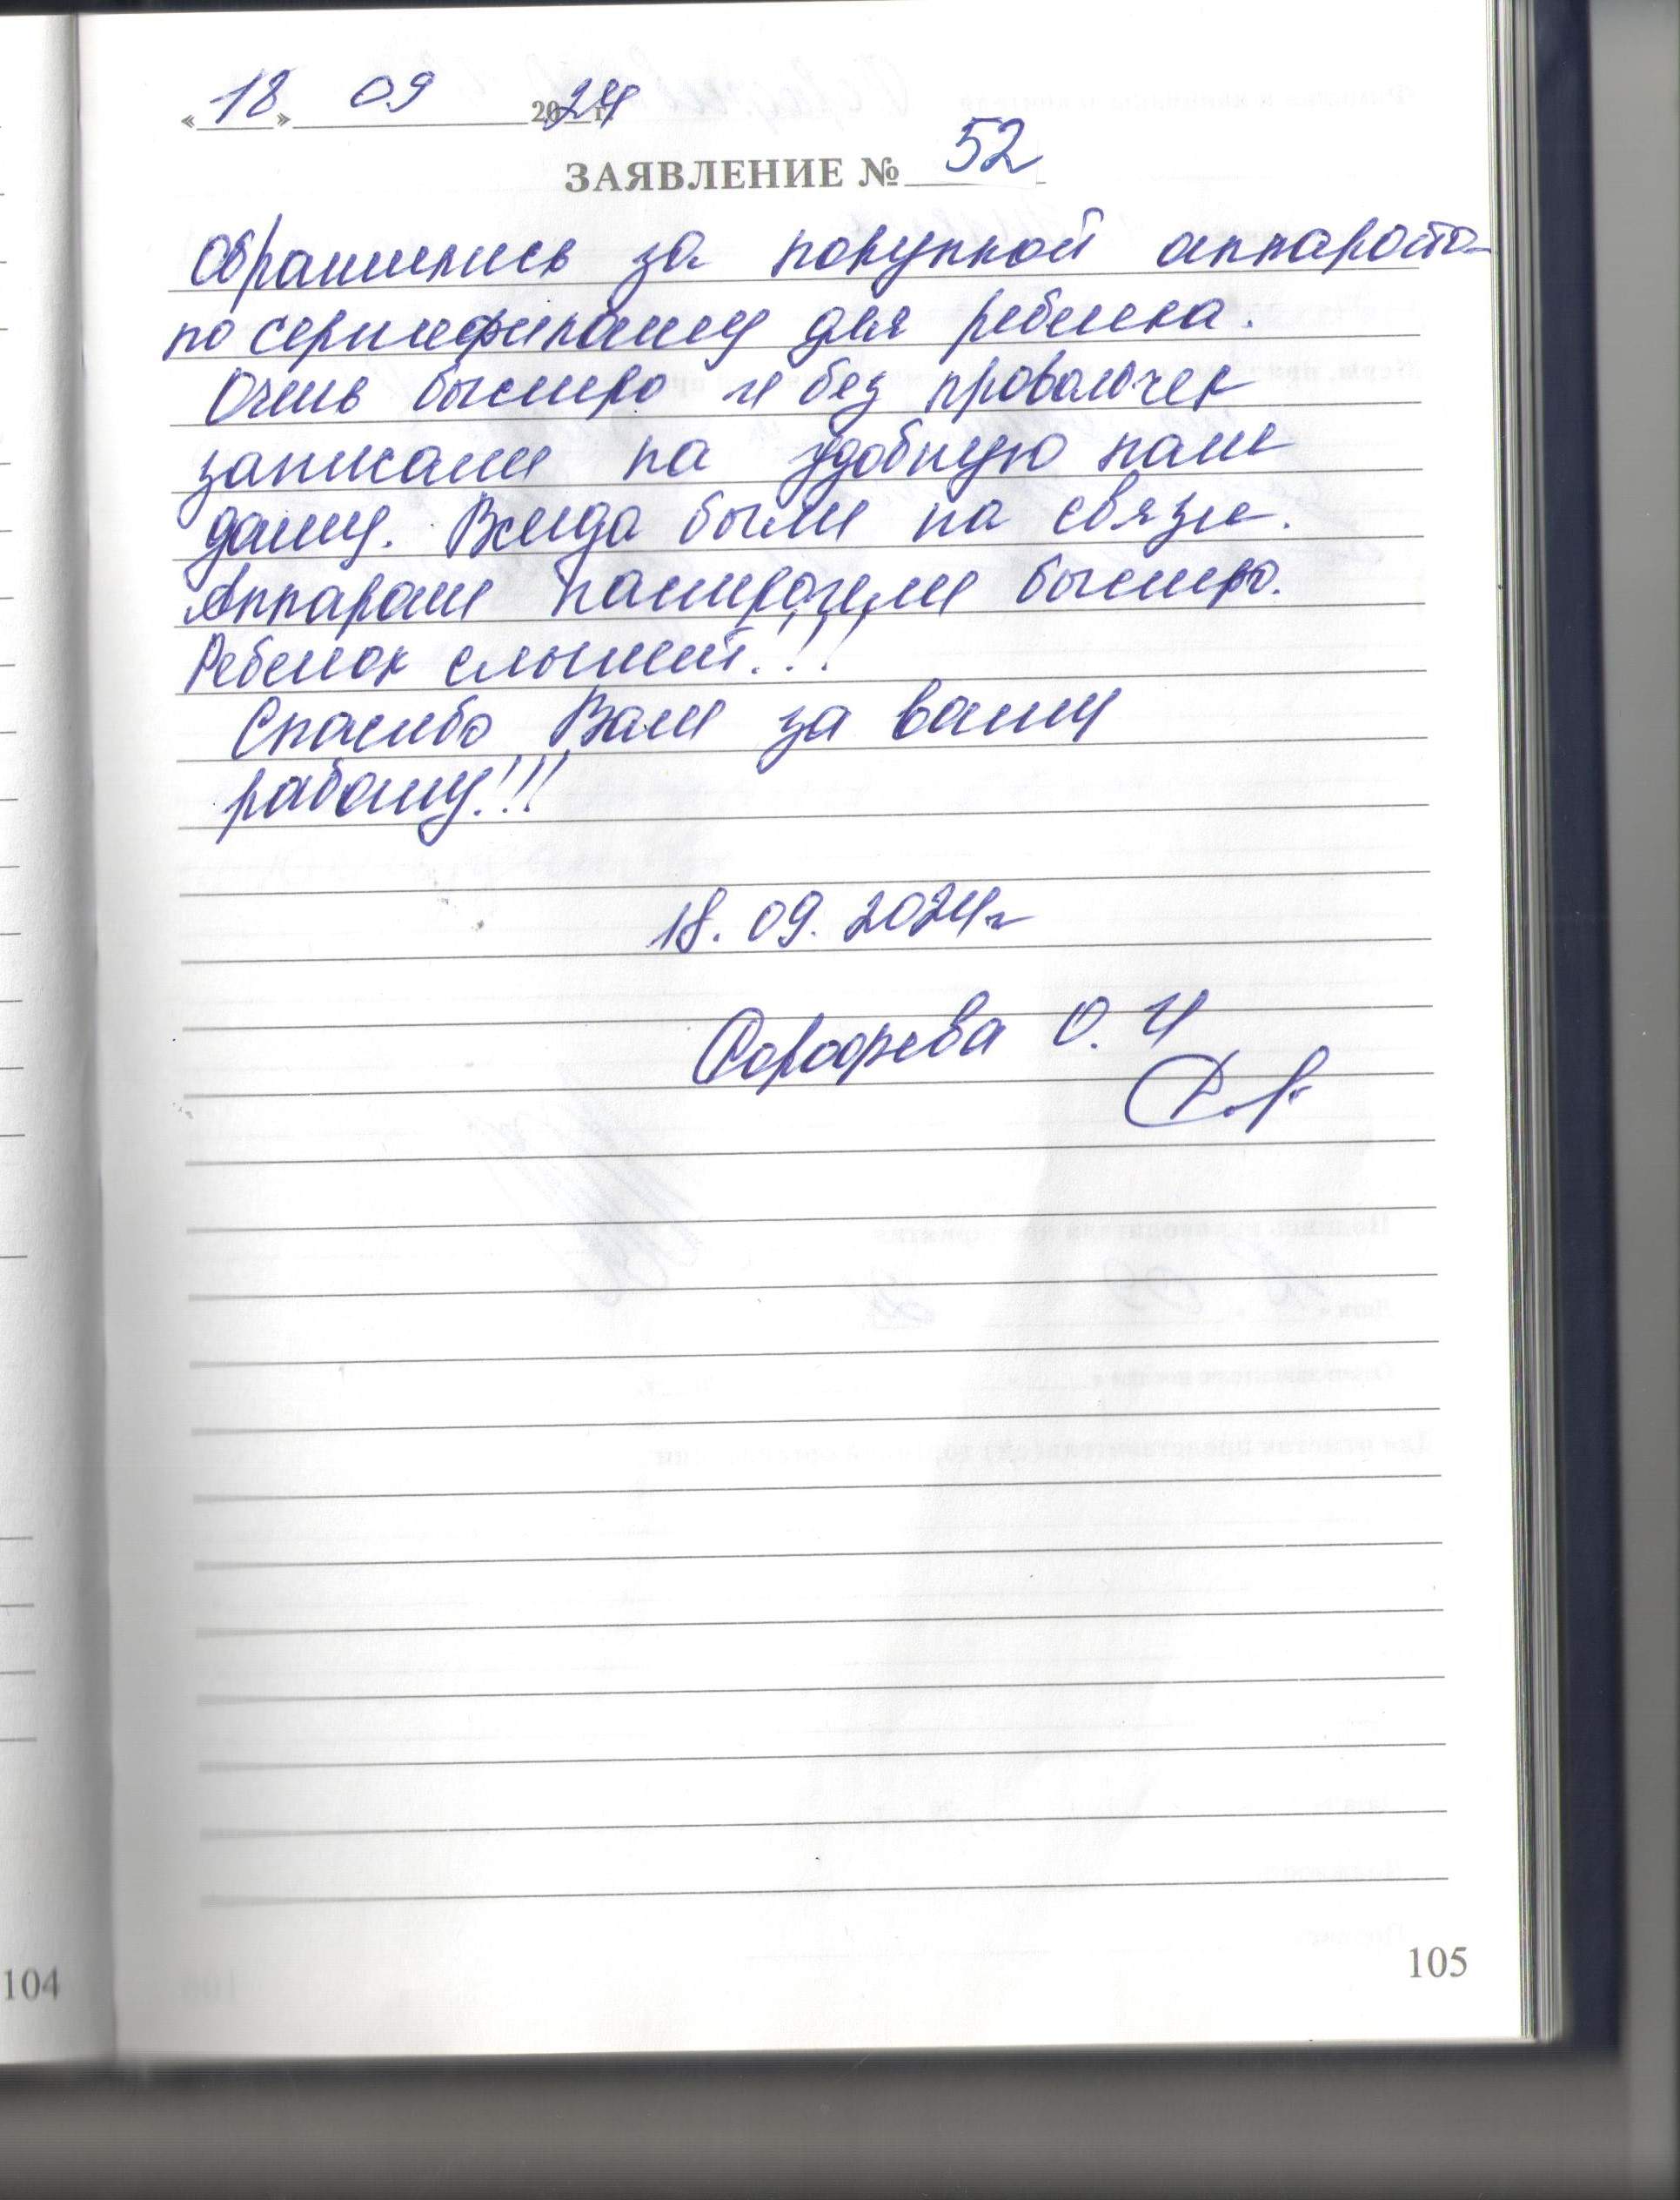 « 18 » 09 2024 г.
ЗАЯВЛЕНИЕ № 52
Обратились за покупкой аппарата
по сертификату для ребенка.
Очень быстро и без проволочек
записали на удобную нам
дату. Всегда были на связи.
Аппарат настроили быстро.
Ребенок слышит!!!
Спасибо Вам за вашу
работу!!!
18.09.2024г
О. И
104
105